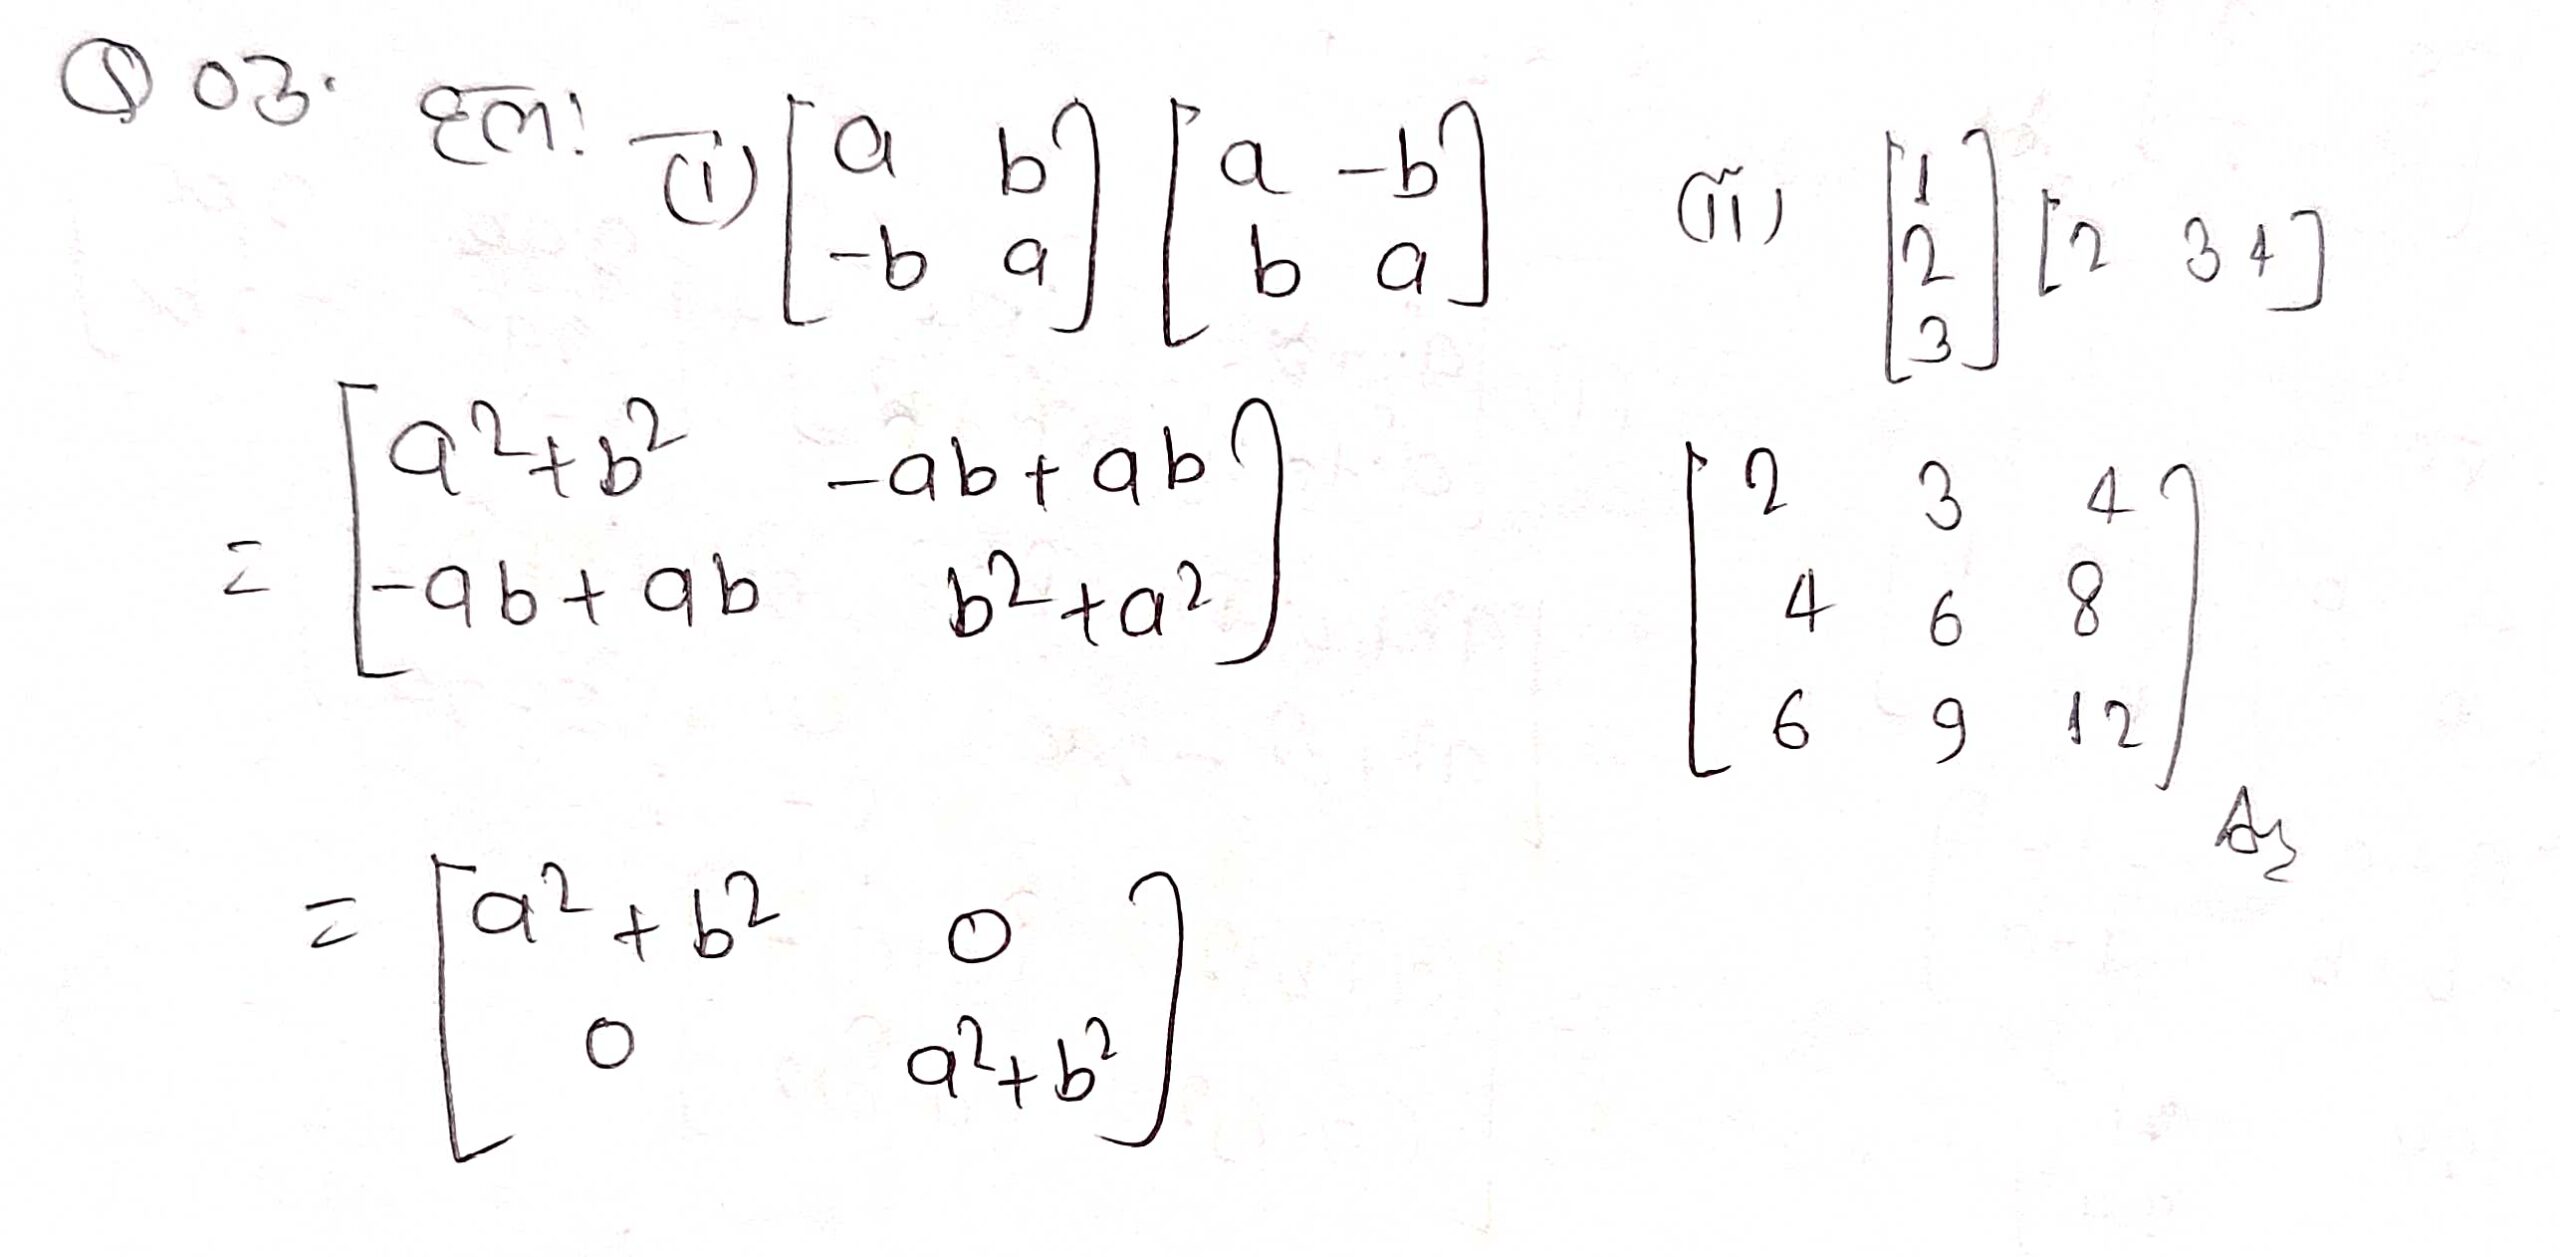 Q 03. हल: (i) [a b; -b a] [a -b; b a]
= [a²+b² -ab+ab; -ab+ab b²+a²]
= [a²+b² 0; 0 a²+b²]
(ii) [1; 2; 3] [2 3 4]
[2 3 4; 4 6 8; 6 9 12]
Ans